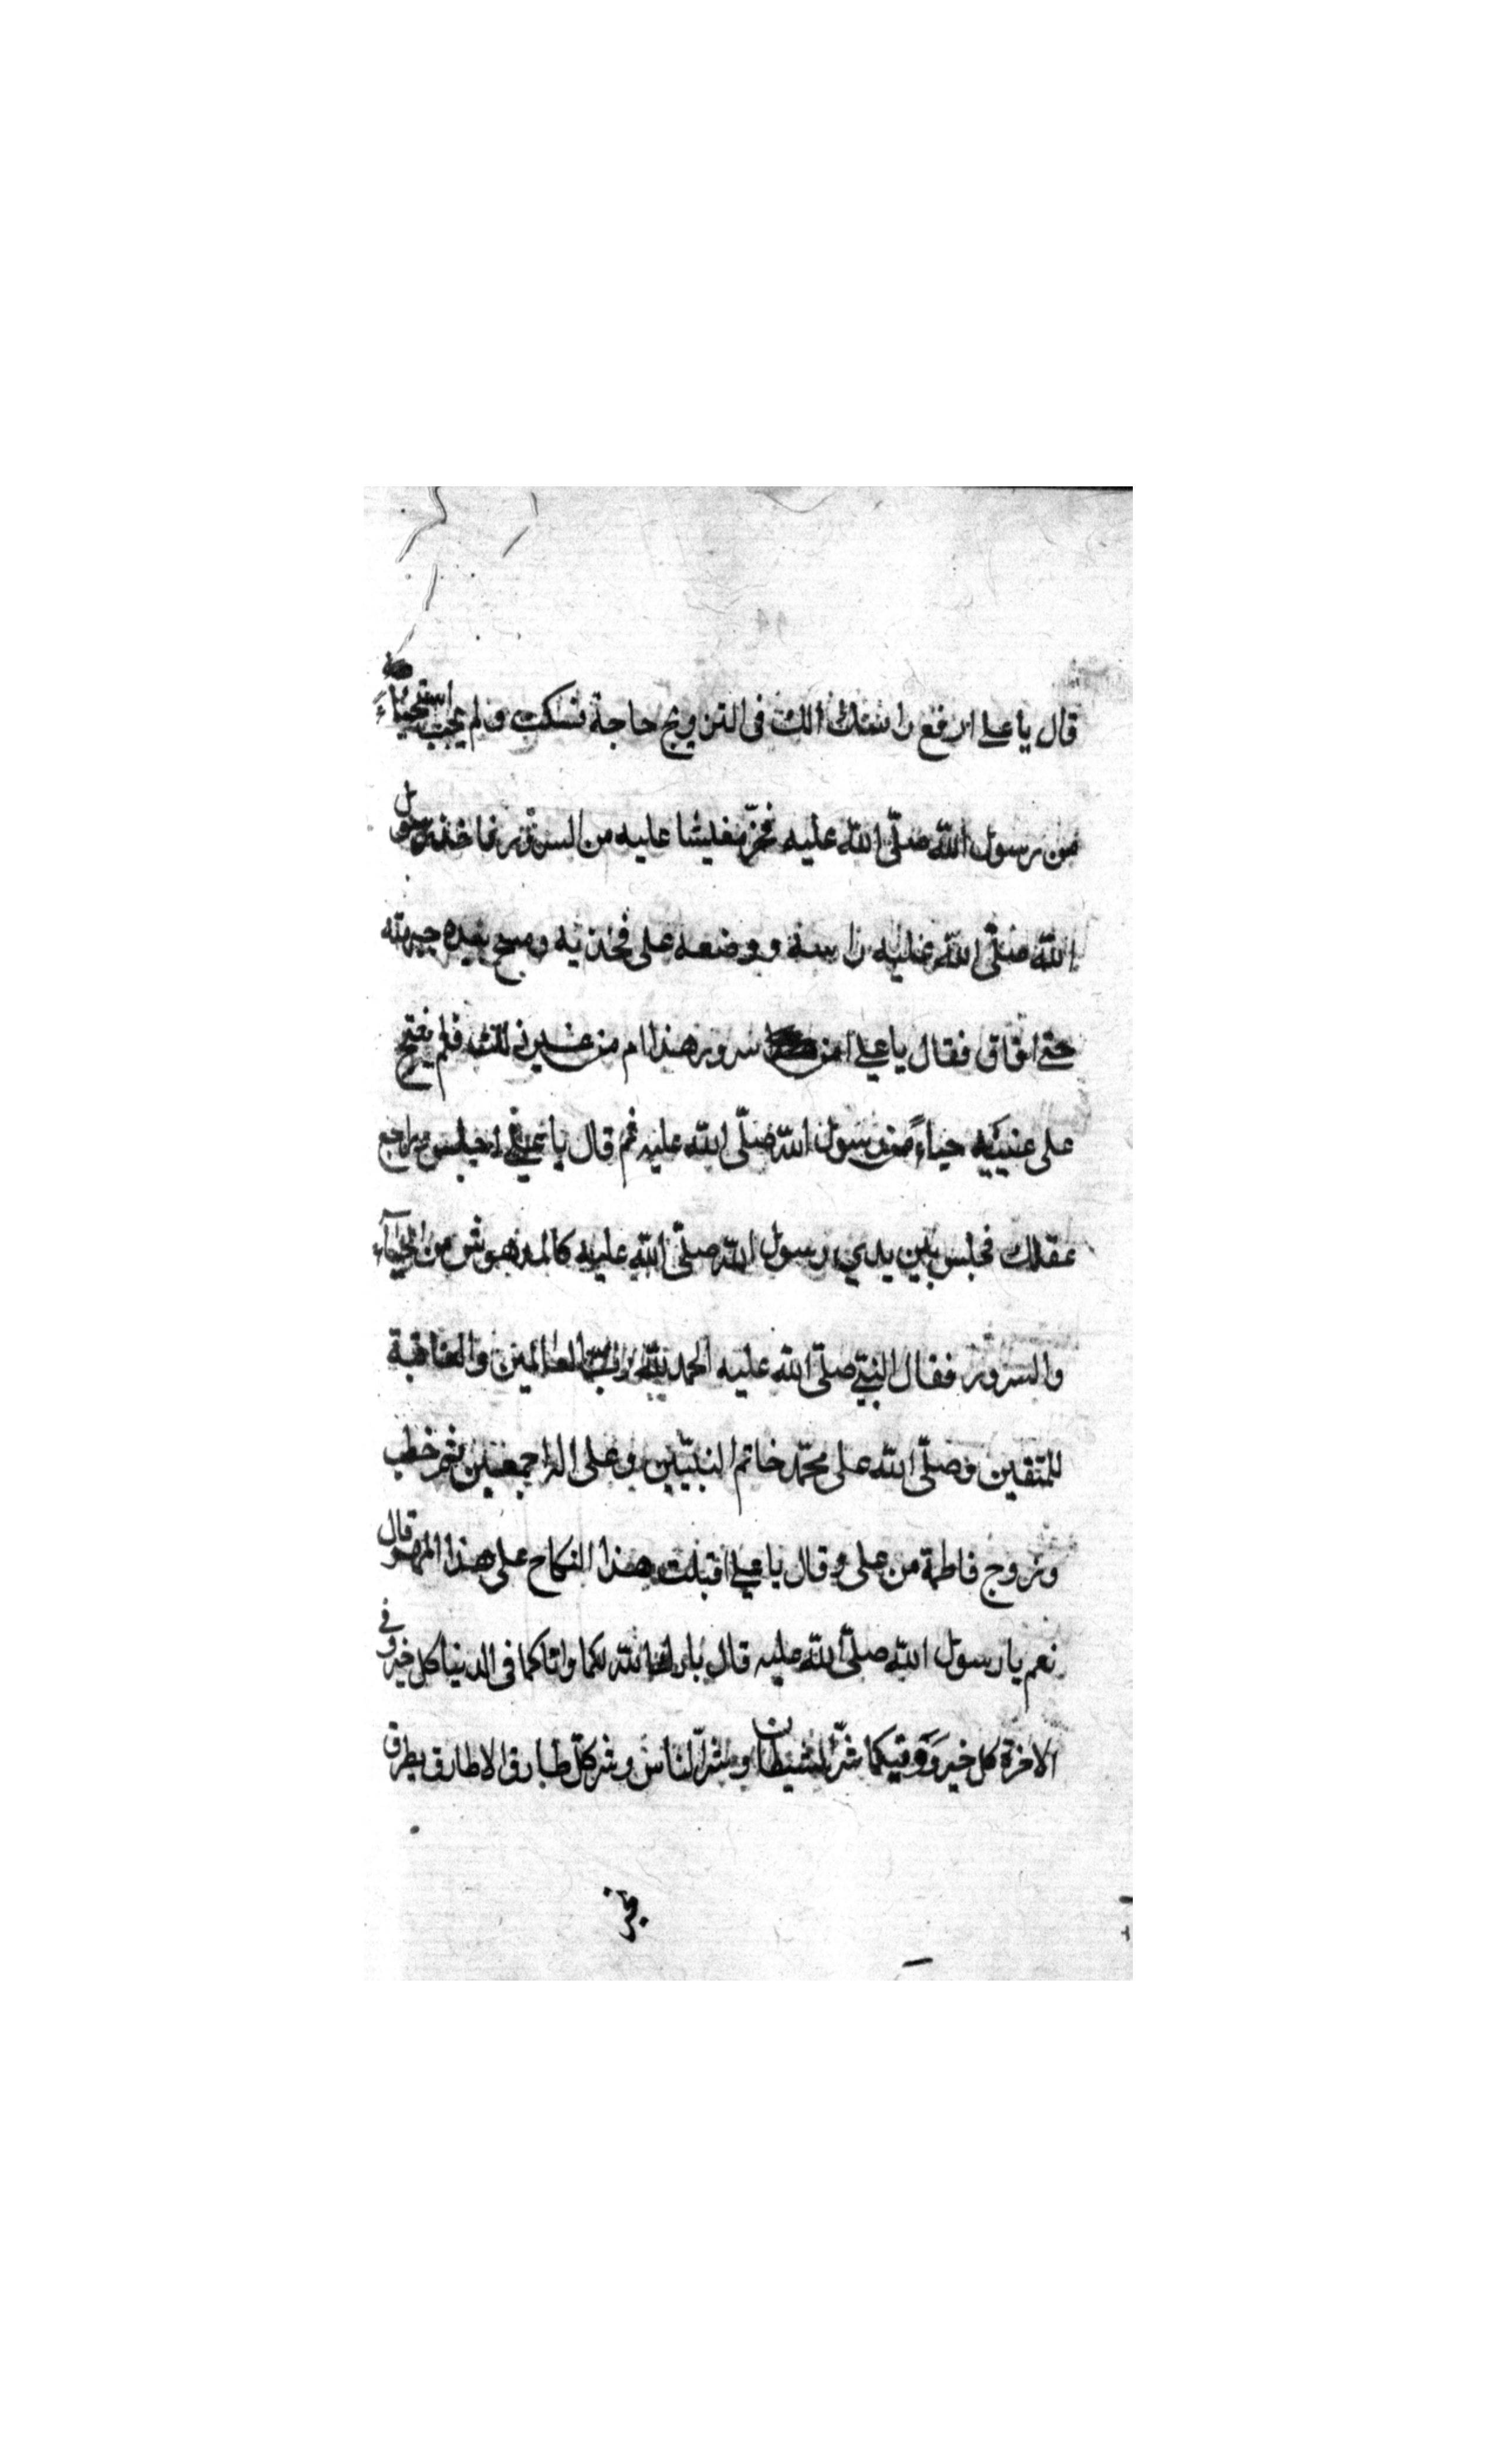 قال يا علي ارفع راسك الك في التزويج حاجة فسكت ولم يجب استحياءً
من رسول اللّه صلّى اللّه عليه فخرّ مغيشا عليه من السرور فاخذ رسول
اللّه صلّى اللّه عليه راسه ووضعه على فخذيه ومسح بيده جبهته
حتى افاق فقال يا علي امن سرور هذا ام من غير ذلك فلم يفتح
على عينيه حياءً من رسول اللّه صلّى اللّه عليه ثم قال يا علي اجلس وراجع
عقلك فجلس بين يدي رسول اللّه صلّى اللّه عليه كالمدهوش من الحيآء
والسرور فقال النبي صلّى اللّه عليه الحمد للّه ربّ العالمين والعاقبة
للمتقين وصلّى اللّه على محمّد خاتم النبيّين وعلى اله اجمعين ثم خطب
وزوج فاطمة من على وقال يا علي اقبلت هذا النكاح على هذا المهر قال
نعم يا رسول اللّه صلّى اللّه عليه قال بارك اللّه لكما واتاكما في الدنيا كل خير وفي
الاخرة كل خير ووقيكما شرّ الشيطان وشرّ الناس وشر كلّ طارق الا طارق يطرق
بخير